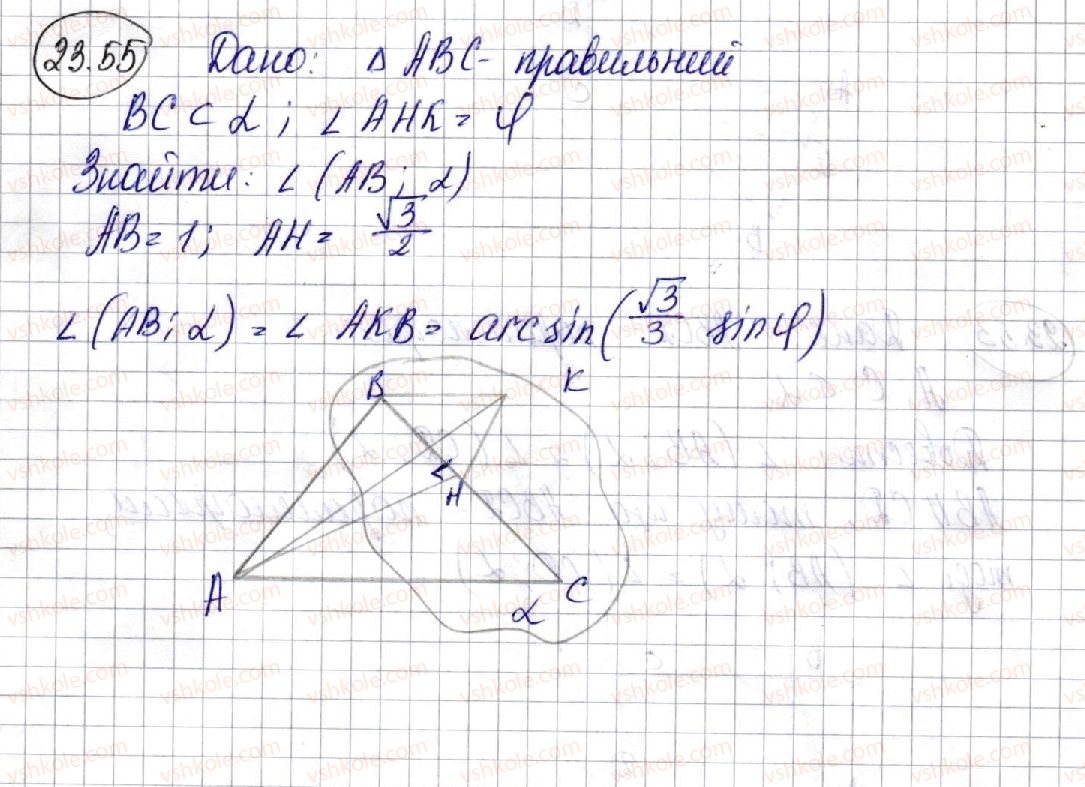 23.55 Дано: Δ ABC - правильний
BC ⊂ α; ∠ AHK = φ
Знайти: ∠ (AB; α)
AB = 1; AH = √3/2
∠ (AB; α) = ∠ AKB = arcsin(√3/3 sin φ)
B K
H
A C
α
vshkole.com